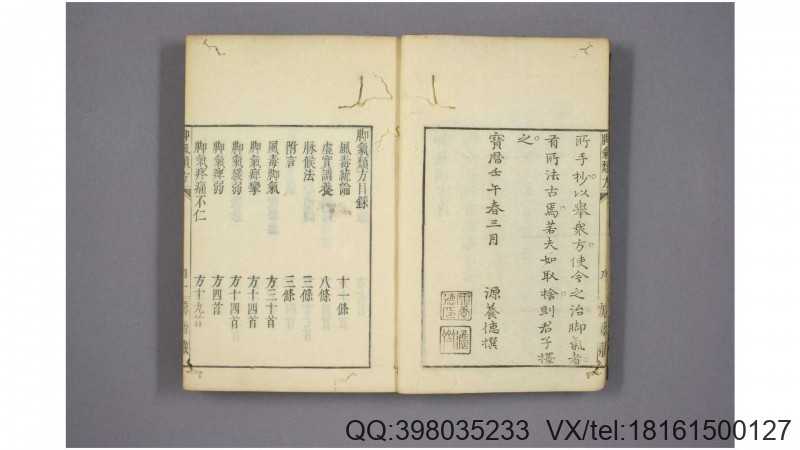 所手抄以舉衆方使今之治脚氣者
有所法古焉若夫如取捨則君子擇
之
寳曆壬午春三月
源養德撰
脚氣類方
脚氣類方目錄
風毒統論 十一條
虛實調養 八條
脉候法 三條
附言 三條
風毒脚氣 方三十首
脚氣痺攣 方十四首
脚氣緩弱 方十四首
脚氣痺弱 方四首
脚氣疼痛不仁 方十九首
QQ:398035233 VX/tel:18161500127